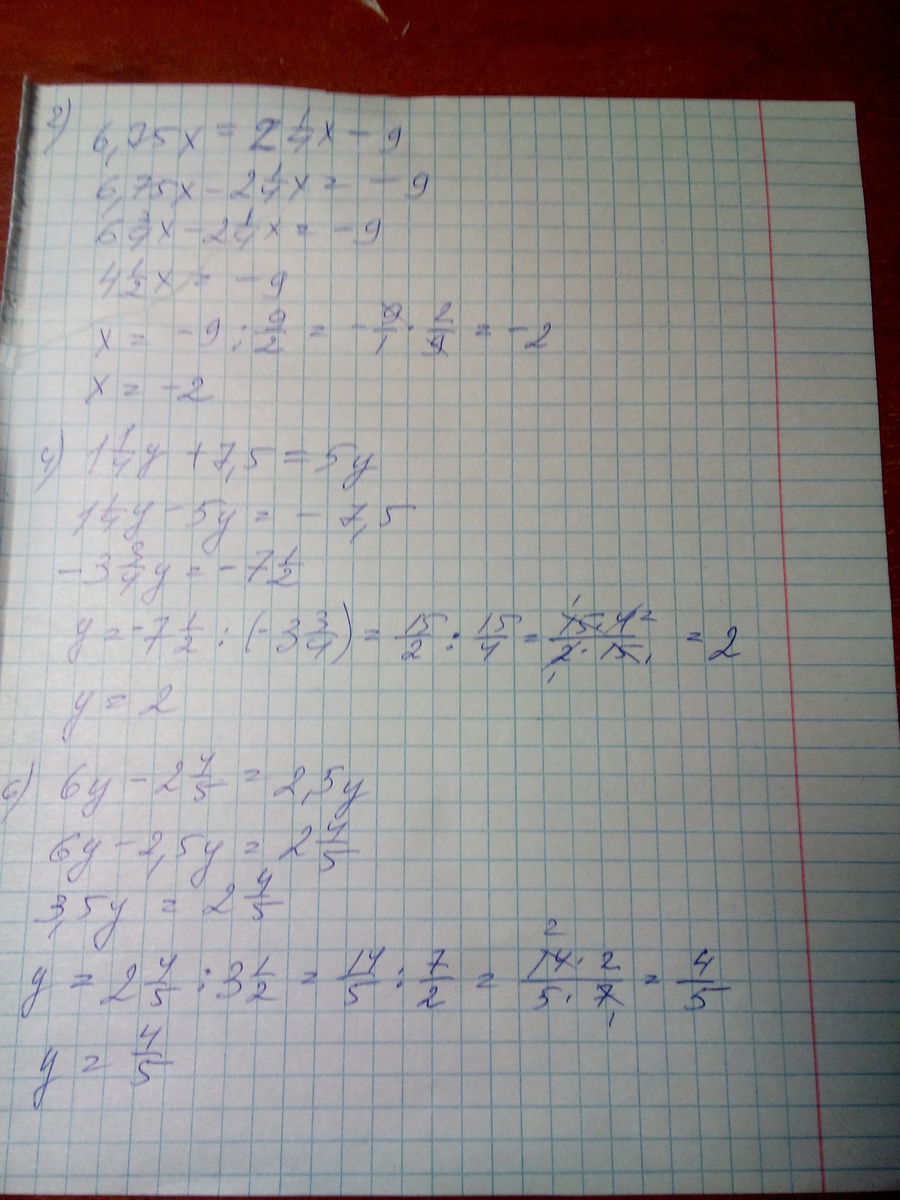 2) 6,75x = 2 1/4 x - 9
6,75x - 2 1/4 x = -9
6 3/4 x - 2 1/4 x = -9
4 1/2 x = -9
x = -9 : 9/2 = - 9/1 · 2/9 = -2
x = -2
4) 1 1/4 y + 7,5 = 5y
1 1/4 y - 5y = - 7,5
-3 3/4 y = -7 1/2
y = -7 1/2 : (-3 3/4) = 15/2 : 15/4 = 15·4/2·15 = 2
y = 2
6) 6y - 2 4/5 = 2,5y
6y - 2,5y = 2 4/5
3,5y = 2 4/5
y = 2 4/5 : 3 1/2 = 14/5 : 7/2 = 14·2/5·7 = 4/5
y = 4/5